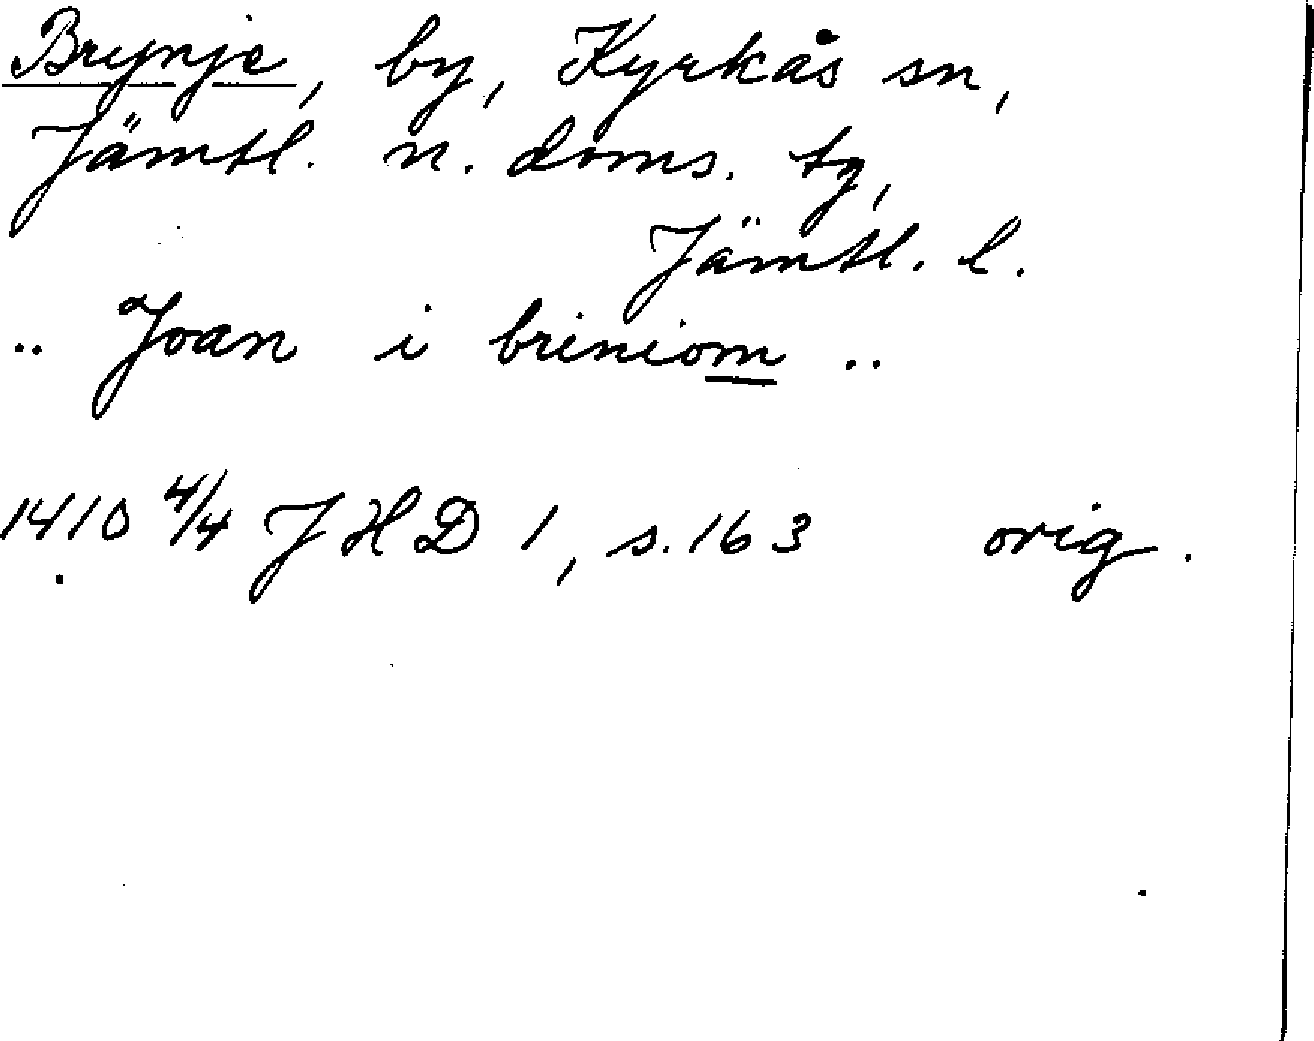 Brynje, by, Kyrkås sn,
Jämtl. n. doms. tg,
Jämtl. l.
.. Joan i briniom ..
1410 4/4 JHD 1, s. 163 orig.